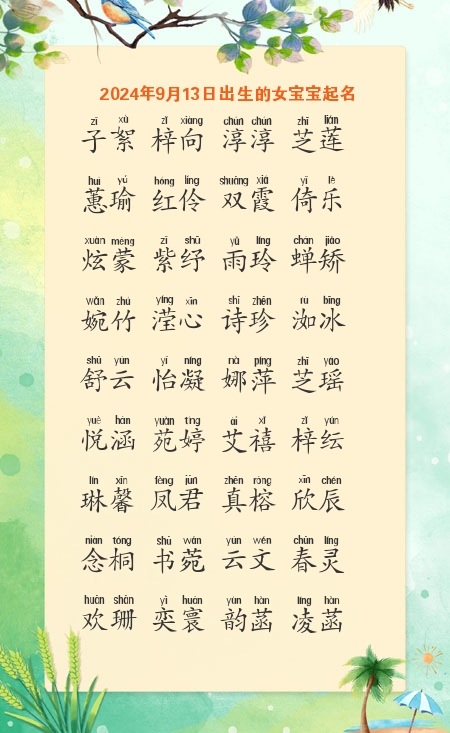 2024年9月13日出生的女宝宝起名
zǐ xù zǐ xiàng chún chún zhī lián
子絮 梓向 淳淳 芝莲
huì yú hóng líng shuāng xiá yǐ lè
蕙瑜 红伶 双霞 倚乐
xuàn méng zǐ shū yǔ líng chán jiǎo
炫蒙 紫纾 雨玲 蝉矫
wǎn zhú yíng xīn shī zhēn rù bīng
婉竹 滢心 诗珍 洳冰
shū yún yí níng nà píng zhī yáo
舒云 怡凝 娜萍 芝瑶
yuè hán yuàn tíng ài xǐ zǐ yún
悦涵 苑婷 艾禧 梓纭
lín xīn fèng jūn zhēn róng xīn chén
琳馨 凤君 真榕 欣辰
niàn tóng shū wǎn yún wén chūn líng
念桐 书菀 云文 春灵
huān shān yì huán yùn hàn líng hàn
欢珊 奕寰 韵菡 凌菡